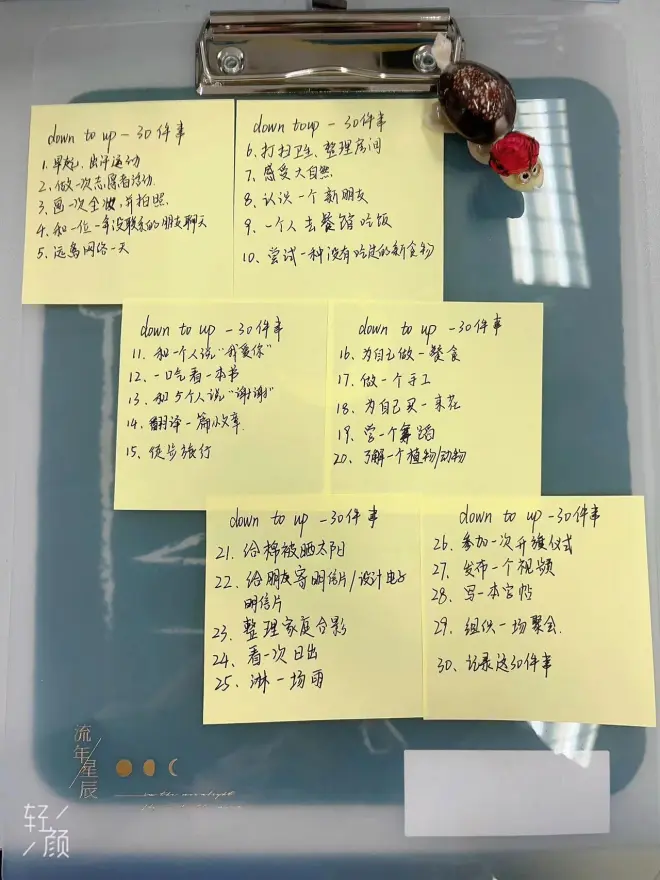 down to up - 30件事
1. 早起, 出汗运动
2. 做一次志愿者活动.
3. 画一次全妆, 并拍照.
4. 和一位一年没联系的朋友聊天
5. 远离网络一天
down to up - 30件事
6. 打扫卫生、整理房间
7. 感受大自然
8. 认识一个新朋友
9. 一个人去餐馆吃饭
10. 尝试一种没有吃过的新食物
down to up - 30件事
11. 和一个人说“我爱你”
12. 一口气看一本书
13. 和5个人说“谢谢”
14. 翻译一篇小文章.
15. 徒步旅行
down to up - 30件事
16. 为自己做一餐食
17. 做一个手工
18. 为自己买一束花
19. 学一个舞蹈
20. 了解一个植物/动物
down to up - 30件事
21. 给棉被晒太阳
22. 给朋友寄明信片/设计电子
明信片
23. 整理家庭合影
24. 看一次日出
25. 淋一场雨
down to up - 30件事
26. 参加一次升旗仪式
27. 发布一个视频
28. 写一本字帖
29. 组织一场聚会.
30. 记录这30件事
流年星辰
轻颜